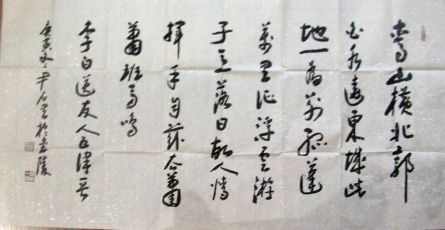 青山橫北郭
白水遶東城此
地一為別孤蓬
萬里征浮雲遊
子意落日故人情
揮手自茲去蕭
蕭班馬鳴
李白送友人五律
庚寅冬尹石